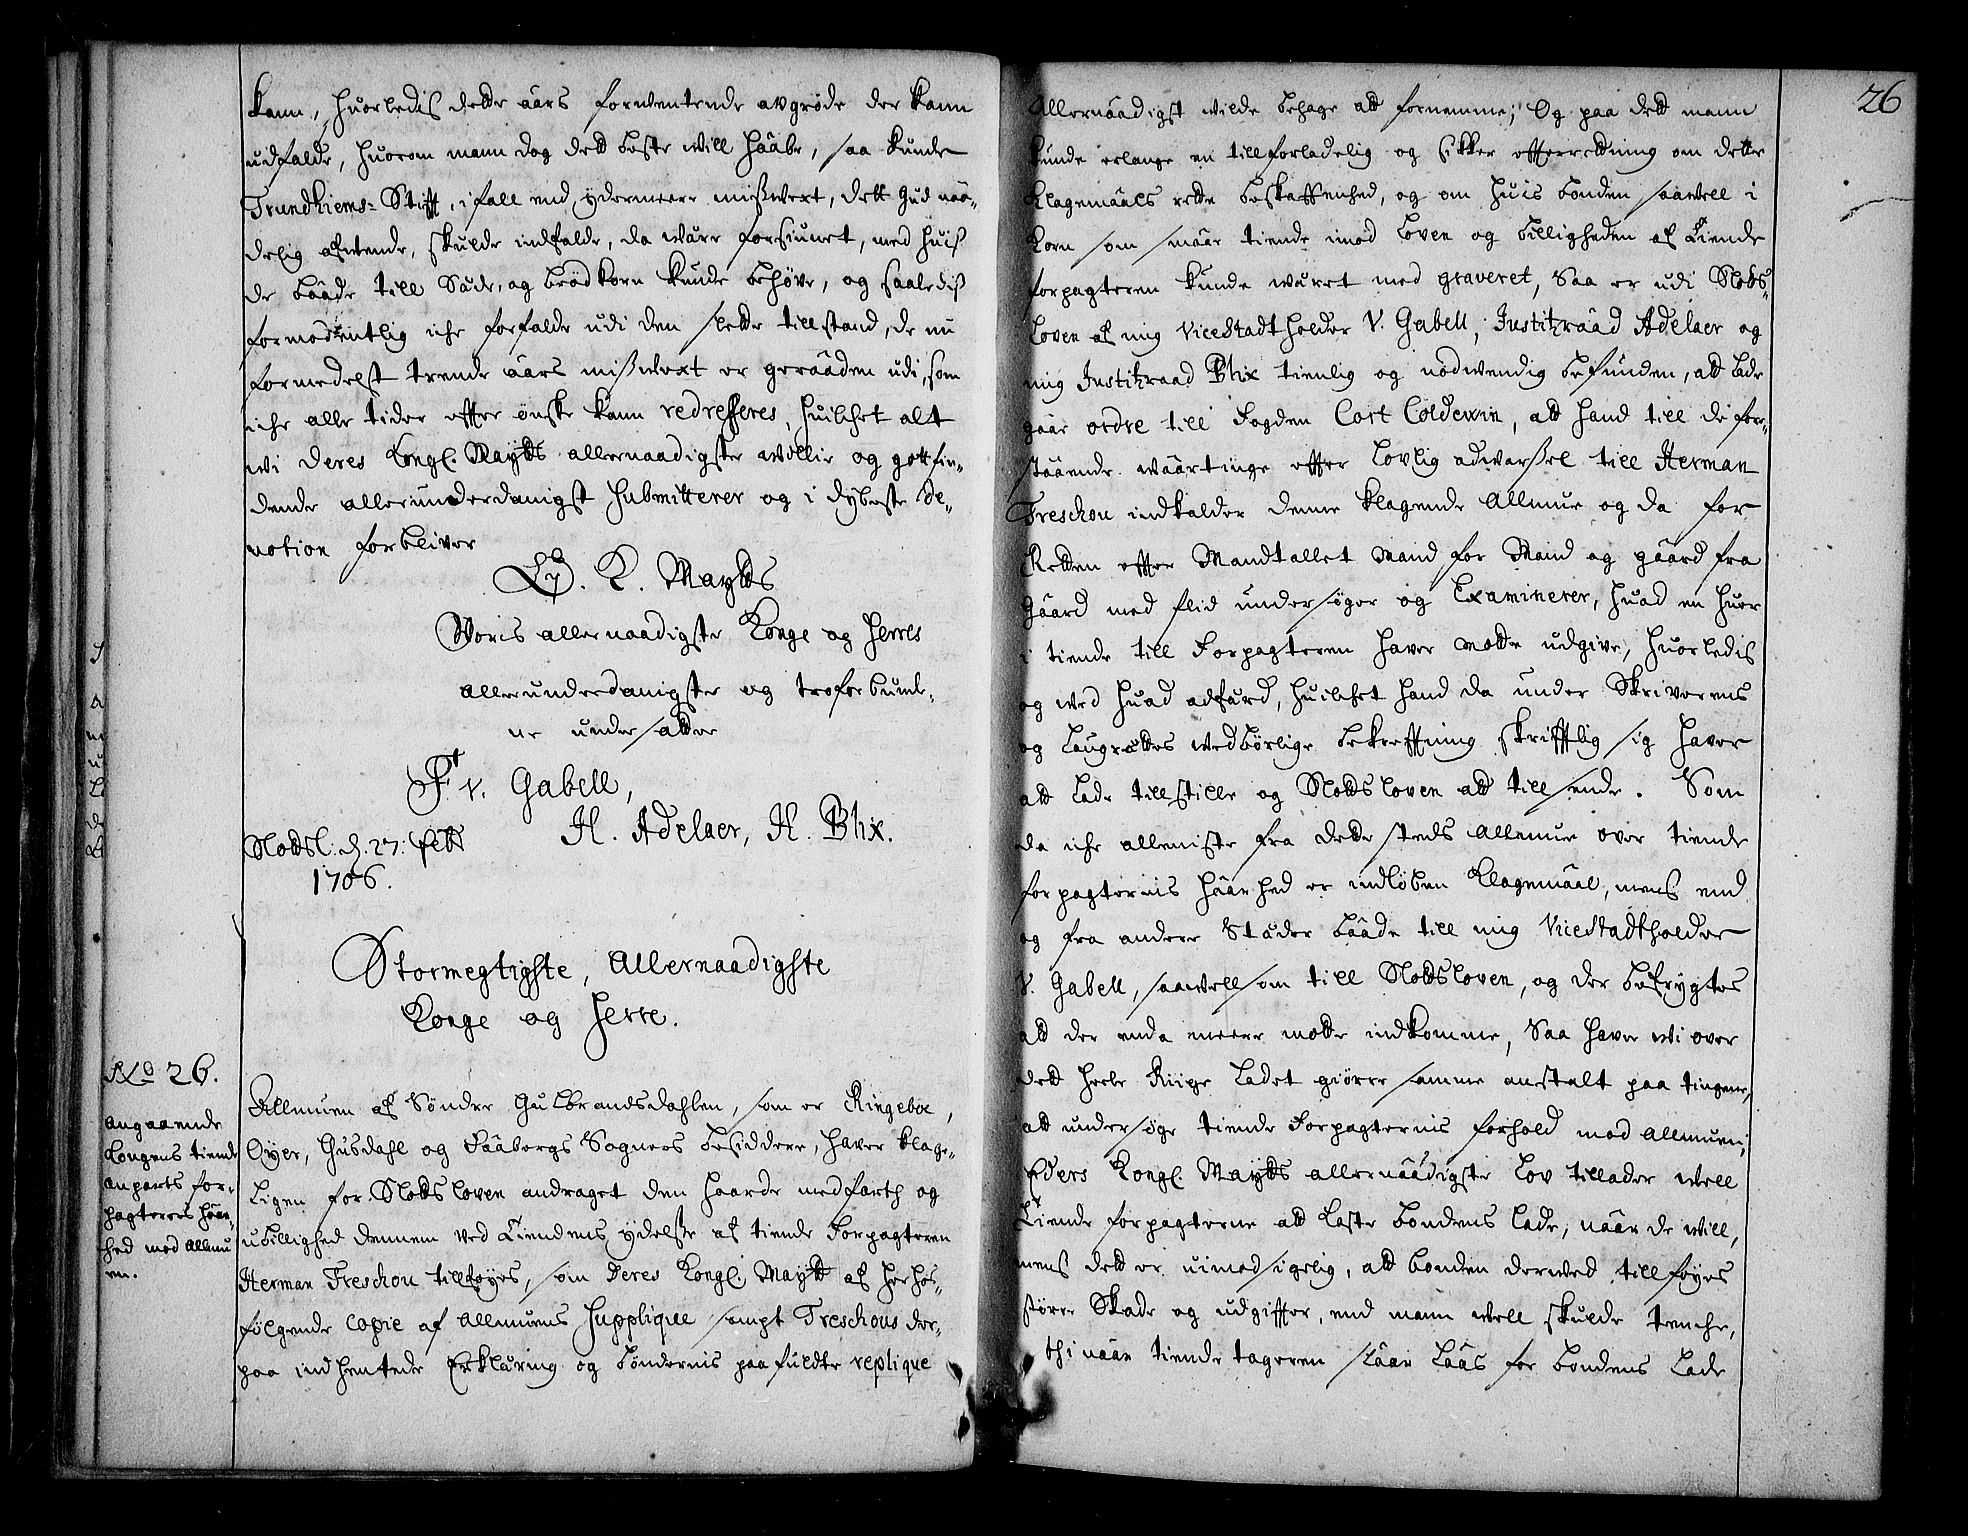 kann, huorledis dette aars forwentende avgröde der kann
udfalde, huorom mann dog dett beste will haabe, saa kunde
Trundhiems= Stifft, i fall end ydermeere mißwext, dett Gud naa¬
delig afwende, skulde indfalde, da være forsiunet, med huiß
de baade till Sæde, og brödkorn kunde behöve, og saalediß
formodentlig iche forfalde udi den slette tillstand, de nu
formedelst trende aars mißwext er geraaden udi, som
iche alle tider effter önske kann redresseres, huilchet alt
wi Deres Kongl. Maytts allernaadigste willie og gottfin¬
dende allerunderdanigst submitterer og i dybeste de¬
votion forbliver
Ed. K. Maytts
Woris allernaadigste Konge og Herres
allerunderdanigste og troforbund¬
ne undersatter
F. v. Gabell,
H. Adelaer, H. Blix.
Slottsl. d. 27: febr
1706.
Stormegtigste, Allernaadigste
Konge og Herre.
No 26.
angaaende
Kongens tiende
anparts for¬
pagteres haar¬
hed mod Allmu
en.
Allmuen af Söndre Gulbrandsdahlen, som er Ringeboe,
Öyer, Gusdahl og Faaborgs Sogners besiddere, haver klage¬
ligen for Slottsloven andraget den haarde medfarth og
ubillighed dennem ved Tiendens ydelße af tiende Forpagteren
Herman Treschou tillföyes, som Deres Kongl. Maytt af her hos¬
fölgende Copie af Allmuens Supplique sampt Treschous der¬
paa indhentede Erklæring og böndernis paafuldte replique
26
Allernaadigst wilde behage att fornemme; Og paa dett mann
kunde erlange en tillforladelig og sikker effterrettning om dette
Klagemaals rette beskaffenhed, og om huis bonden saawell i
Korn som smaae tiende imod Loven og billigheden af Tiende
forpagteren kunde wæret med graveret, Saa er udi Slotts¬
Loven af mig Vicestadtholder V. Gabell, Justitzraad Adelaer og
mig Justitzraad Blix tienlig og nödwendig befunden, att lade
gaae ordre till Fogden Cort Coldewin, att hand till de fore¬
staaende waartinge effter Lovlig adwarßel till Herman
Treschou indkalder denne klagende Allmue og da for
Retten effter Mandtallet Mand for Mand og gaard fra
Gaard med flid undersöger og Examinerer, huad en huer
i tiende till Forpagteren haver mötte udgive, huorledis
og wed huad adfærd, huilchet hand da under Skriverens
og Laugrettes wedbörlige bekrefftning skrifftlig sig haver
att lade tillstille og Slottsloven att tillsende. Som
da iche alleniste fra dette steds Allmue over tiende
forpagternis haarhed er indlöben Klagemaal, mens end
og fra andere Stæder baade till mig Vicestadtholder
V. Gabell, saawell som till Slottsloven, og der befrygtes
att der enda meere motte indkomme, Saa haver wi over
dett heele Riige ladet giörre samme anstalt paa tingene,
att undersöge tiende Forpagternis forhold mod Allmuen;
Eders Kongl. Maytts allernaadigste Lov tillader well
Tiende forpagterne att laste bondens lade, naar de will,
mens dett er uimodsigelig, att bonden derwed tillföyes
större Skade og udgiffter, end mann well skulde tenche,
thi naar tiende tageren slaar Laas for bondens Lade